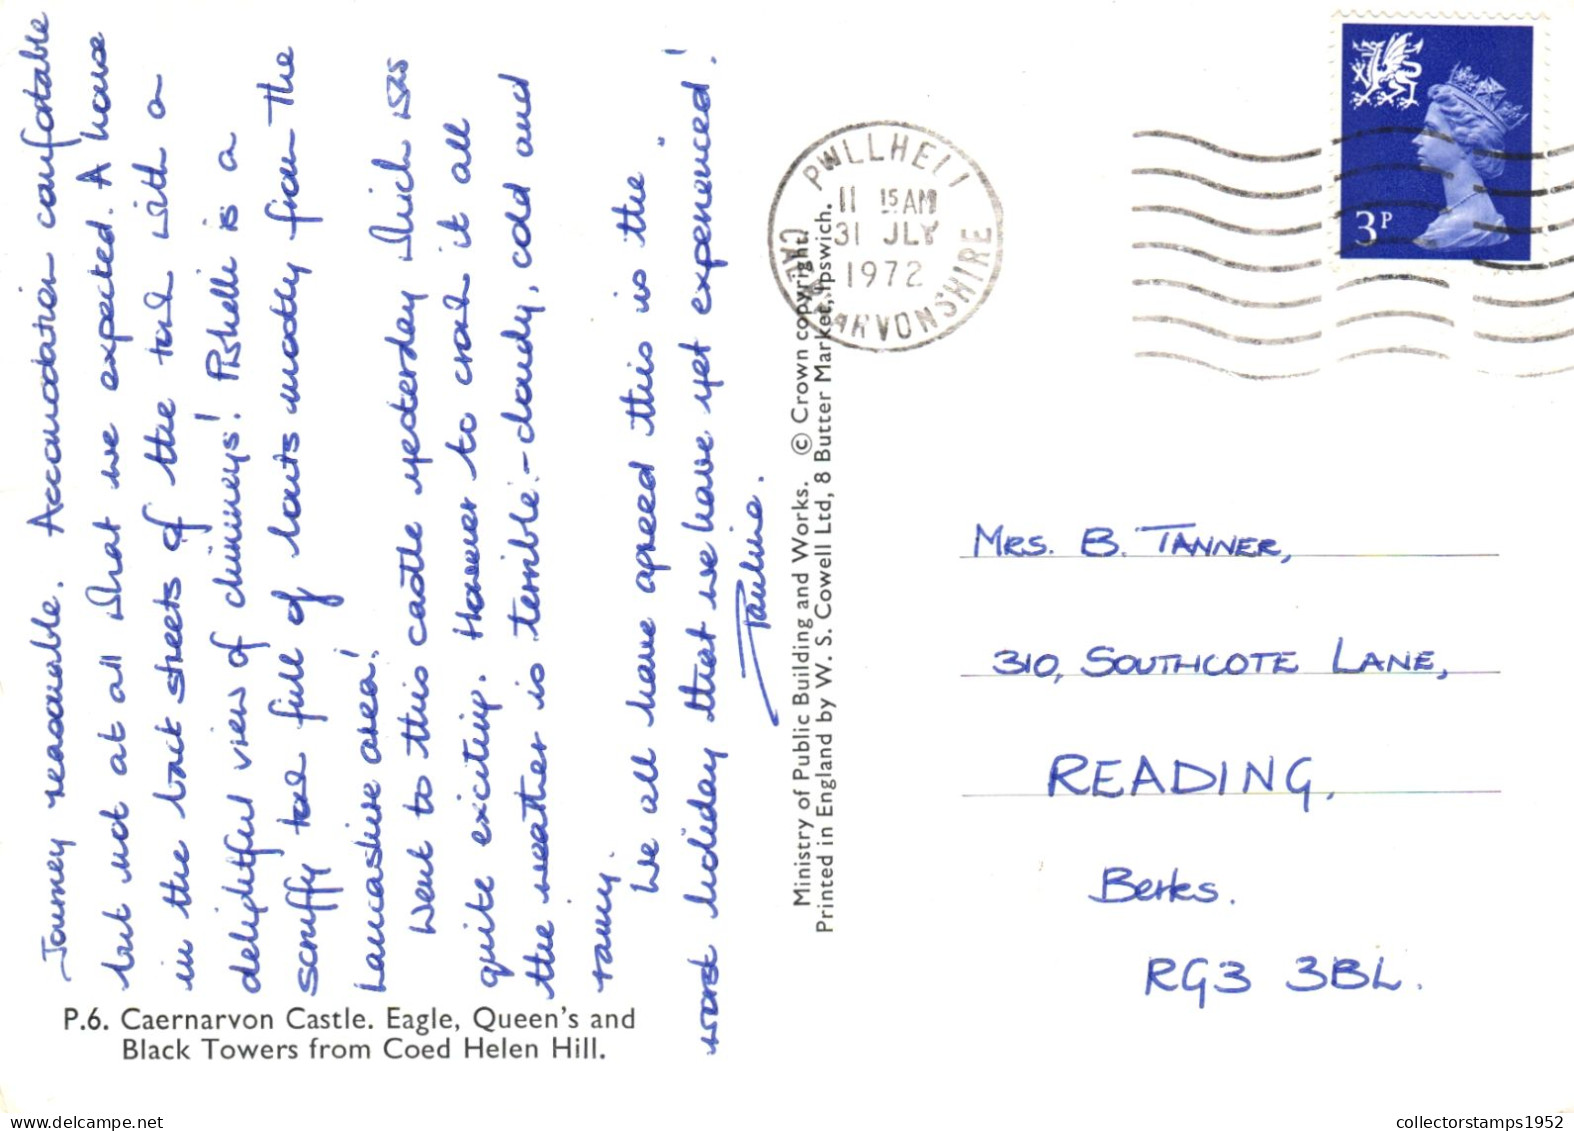 Journey reasonable. Accomodation comfortable
but not at all what we expected. A house
in the back streets of the town with a
delightful view of chimneys! Pwllheli is a
scruffy town full of louts mostly from the
Lancashire area!
Went to this castle yesterday which was
quite exciting. However to crown it all
the weather is terrible - cloudy, cold and
rainy.
We all have agreed this is the "
worst holiday that we have yet experienced!
Pauline.
P.6. Caernarvon Castle. Eagle, Queen's and
Black Towers from Coed Helen Hill.
Ministry of Public Building and Works. © Crown copyright.
Printed in England by W. S. Cowell Ltd, 8 Butter Market, Ipswich.
PWLLHELI
11 15 AM
31 JLY
1972
CAERNARVONSHIRE
3P
MRS. B. TANNER,
310, SOUTHCOTE LANE,
READING,
Berks.
RG3 3BL.
collectorstamps1952